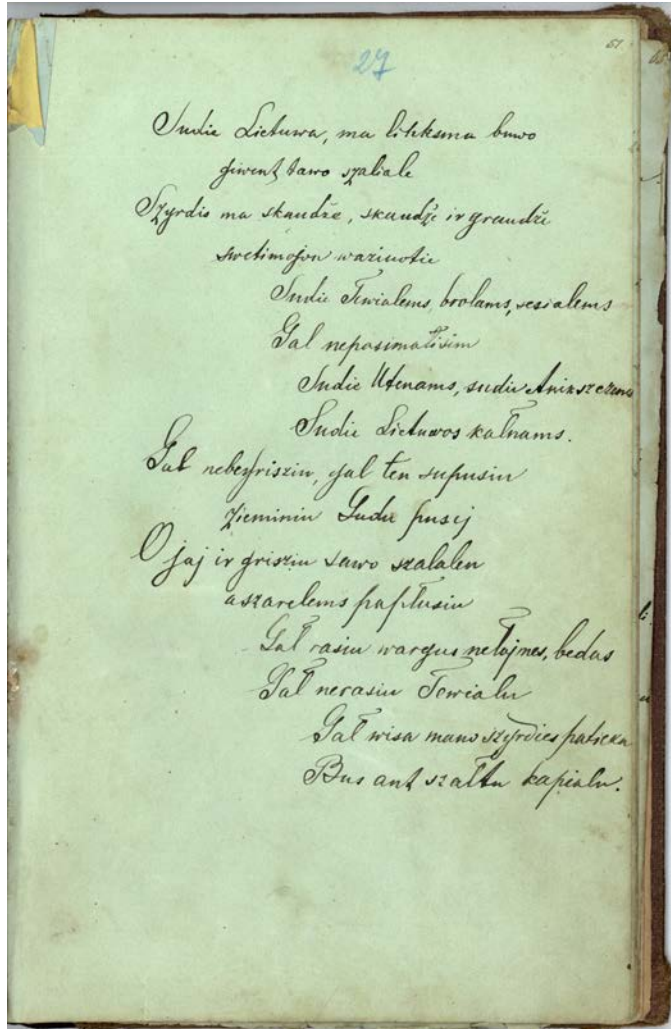 27
61
Sudie Lietuwa, ma linksma buwo
giwent tawo szaliale
Szyrdis ma skaudže, skaudže ir graudže
swetimojon waziuotie
Sudie Tewialems, brolams, sesialems
Gal nepasimatisim
Sudie Utenams, sudie
Sudie Lietuwos kałnams.
Gal nebegrisziu, gal ten supusiu
Zieminiu Gudu pusej
O jaj ir grisziu sawo szalalen
aszarelems paplusiu
Gał rasiu wargus nelajnes, bedas
Gał nerasiu Tewialu
Gał wisa mano szyrdies patieka
Bus ant szałtu kapialu.